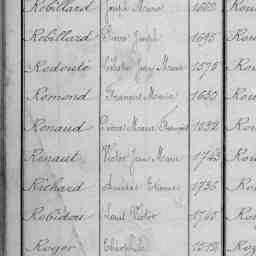 Robillard Joseph Marie 1662 Rou
Robillard Pierre Joseph 1695 Rou
Redouté Jean Marie 1575 Rou
Romond François Marie 1630 Rou
Renaud Pierre Marie François 1232 Rou
Renaut Victor Jean Marie 1743 Rou
Richard Etienne 1736 Rou
Robidou Louis Victor 1765 Rou
Roger